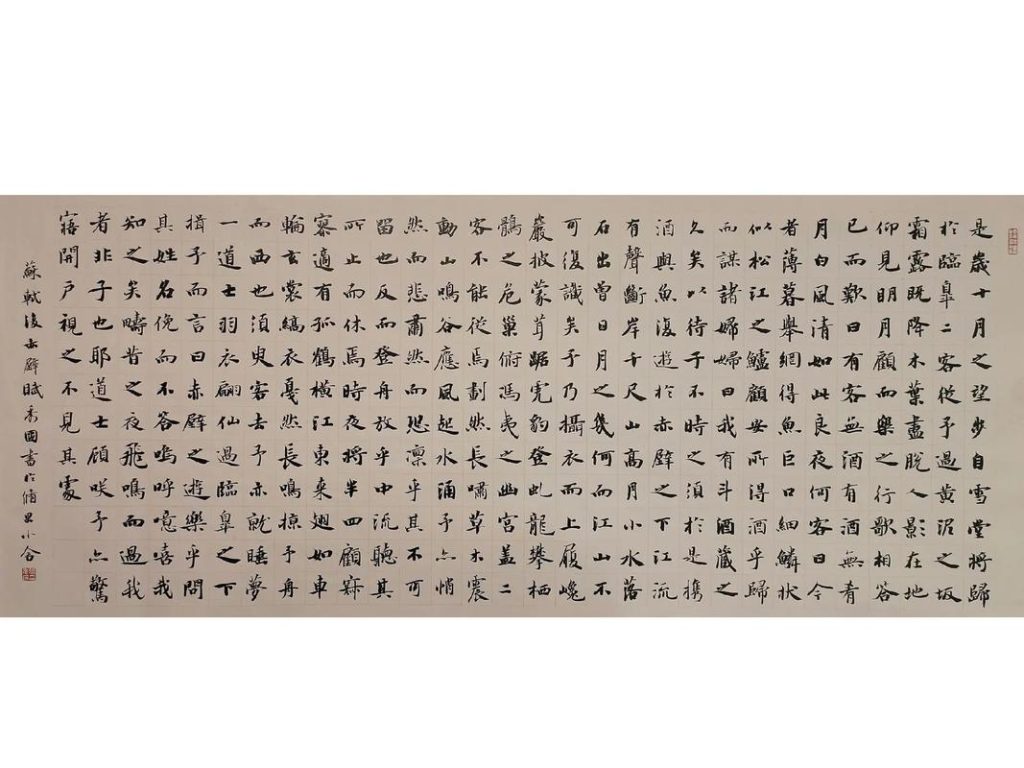 是歲十月之望步自雪堂將歸
於臨皋二客從予過黃泥之坂
霜露既降木葉盡脫人影在地
仰見明月顧而樂之行歌相答
已而歎曰有客無酒有酒無肴
月白風清如此良夜何客曰今
者薄暮舉網得魚巨口細鱗狀
似松江之鱸顧安所得酒乎歸
而謀諸婦婦曰我有斗酒藏之
久矣以待子不時之須於是携
酒與魚復遊於赤壁之下江流
有聲斷岸千尺山高月小水落
石出曾日月之幾何而江山不
可復識矣予乃攝衣而上履巉
巖披蒙茸踞虎豹登虬龍攀栖
鶻之危巢俯馮夷之幽宮蓋二
客不能從焉劃然長嘯草木震
動山鳴谷應風起水涌予亦悄
然而悲肅然而恐凛乎其不可
留也反而登舟放乎中流聽其
所止而休焉時夜將半四顧寂
寥適有孤鶴橫江東來翅如車
輪玄裳縞衣戛然長鳴掠予舟
而西也須臾客去予亦就睡夢
一道士羽衣翩仙過臨皋之下
揖予而言曰赤壁之遊樂乎問
其姓名俛而不答嗚呼噫嘻我
知之矣疇昔之夜飛鳴而過我
者非子也耶道士顧咲予亦驚
寤開戶視之不見其處
蘇軾後赤壁賦秀國書於小舍